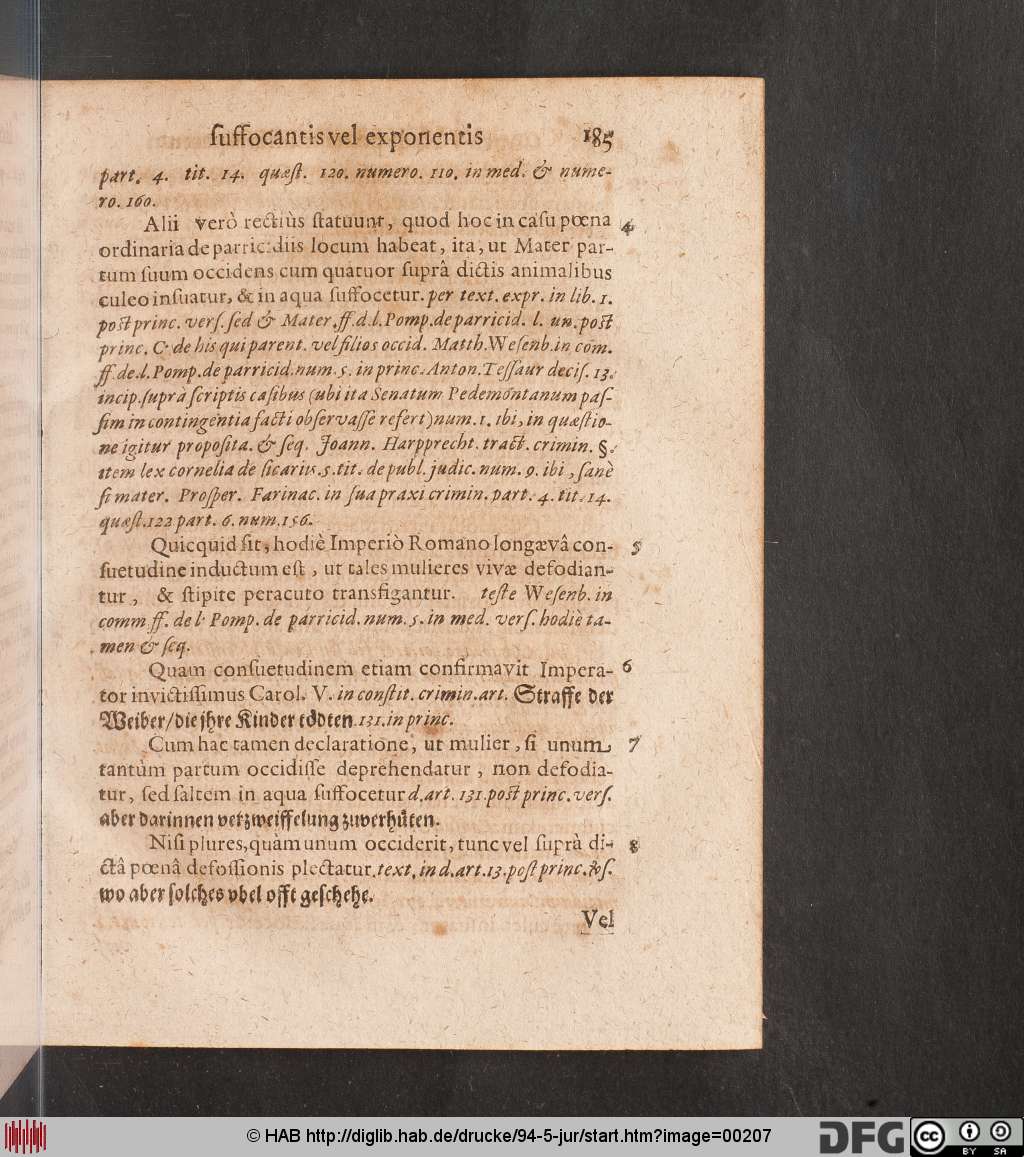 suffocantis vel exponentis 185
part. 4. tit. 14. quæst. 120. numero. 110. in med. & nume-
ro. 160.
Alii verò rectiùs statuunt, quod hoc in casu pœna 4
ordinaria de parricidiis locum habeat, ita, ut Mater par-
tum suum occidens cum quatuor suprâ dictis animalibus
culeo insuatur, & in aqua suffocetur. per text. expr. in lib. 1.
post princ. vers. sed & Mater. ff. d. l. Pomp. de parricid. l. un. post
princ. C. de his qui parent. vel filios occid. Matth. Wesenb. in com.
ff. de. l. Pomp. de parricid. num. 5. in princ. Anton. Tessaur decis. 13.
incip. suprà scriptis casibus (ubi ita Senatum Pedemontanum pas-
sim in contingentia facti observasse refert) num. 1. ibi, in quæstio-
ne igitur proposita. & seq. Joann. Harpprecht. tract. crimin. §.
item lex cornelia de sicariis. 5. tit. de publ. judic. num. 9. ibi, sanè
si mater. Prosper. Farinac. in sua praxi crimin. part. 4. tit. 14.
quæst. 122 part. 6. num. 156.
Quicquid sit, hodiè Imperiò Romano longævâ con- 5
suetudine inductum est, ut tales mulieres vivæ defodian-
tur, & stipite peracuto transfigantur. teste Wesenb. in
comm. ff. de l. Pomp. de parricid. num. 5. in med. vers. hodiè ta-
men & seq.
Quam consuetudinem etiam confirmavit Impera- 6
tor invictissimus Carol. V. in constit. crimin. art. Straffe der
Weiber/die jhre Kinder tödten 131. in princ.
Cum hac tamen declaratione, ut mulier, si unum 7
tantùm partum occidisse deprehendatur, non defodia-
tur, sed saltem in aqua suffocetur d. art. 131. post princ. vers.
aber darinnen verzweiffelung zuverhüten.
Nisi plures, quàm unum occiderit, tunc vel suprà di- 8
ctâ pœnâ defossionis plectatur. text. in d. art. 13. post princ. vs.
wo aber solches vbel offt geschehe.
Vel
© HAB http://diglib.hab.de/drucke/94-5-jur/start.htm?image=00207
DFG
cc BY SA